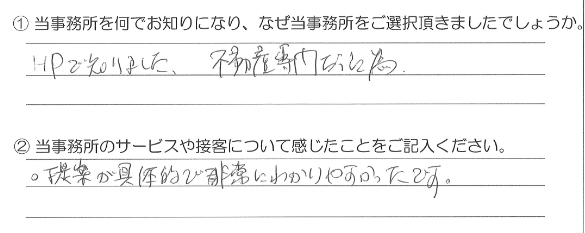 ① 当事務所を何でお知りになり、なぜ当事務所をご選択頂きましたでしょうか。
HPで知りました、不動産専門だった為.
② 当事務所のサービスや接客について感じたことをご記入ください。
。提案が具体的で非常にわかりやすかったです。